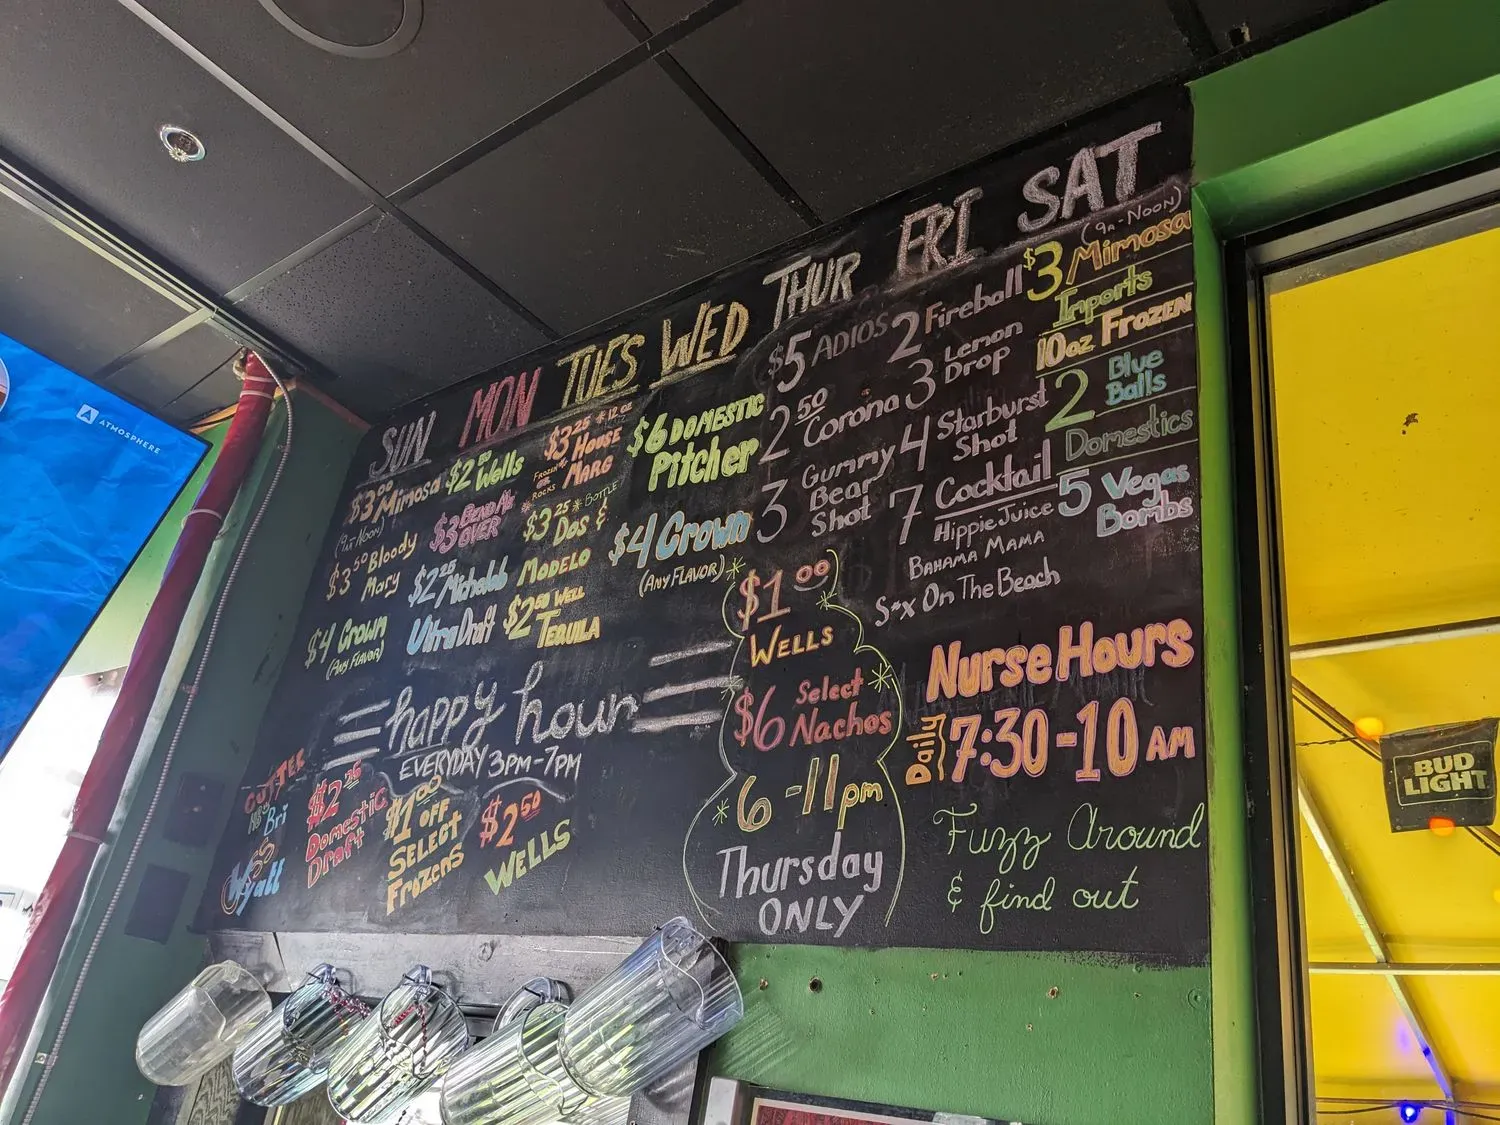 ATMOSPHERE
SUN
$3.00 Mimosa
(9am-Noon)
$3.50 Bloody
Mary
$4 Crown
(Any Flavor)
MON
$2.50 Wells
$3 BEND
OVER
$2.25 Michelob
Ultra Draft
TUES
$3.25 * 12 oz
House
MARG
FROZEN
OR
ROCKS
$3.25 * BOTTLE
Dos &
MODELO
$2.50 WELL
TEQUILA
WED
$6 DOMESTIC
Pitcher
$4 Crown
(ANY FLAVOR)
THUR
$5 ADIOS
2.50
Corona
3 Gummy
Bear
Shot
$1.00
WELLS
$6 Select
Nachos
6-11pm
Thursday
ONLY
FRI
2 Fireball
3 Lemon
Drop
4 Starburst
Shot
7 Cocktail
Hippie Juice
BAHAMA MAMA
S*x On The Beach
SAT
(9A-Noon)
$3 Mimosa
Imports
10oz FROZEN
2 Blue
Balls
Domestics
5 Vegas
Bombs
happy hour
EVERYDAY 3PM-7PM
$2.25
Domestic
Draft
$1.00 OFF
SELECT
Frozens
$2.50
WELLS
Bri
Wyatt
Nurse Hours
Daily 7:30-10 AM
Fuzz Around
& find out
BUD
LIGHT